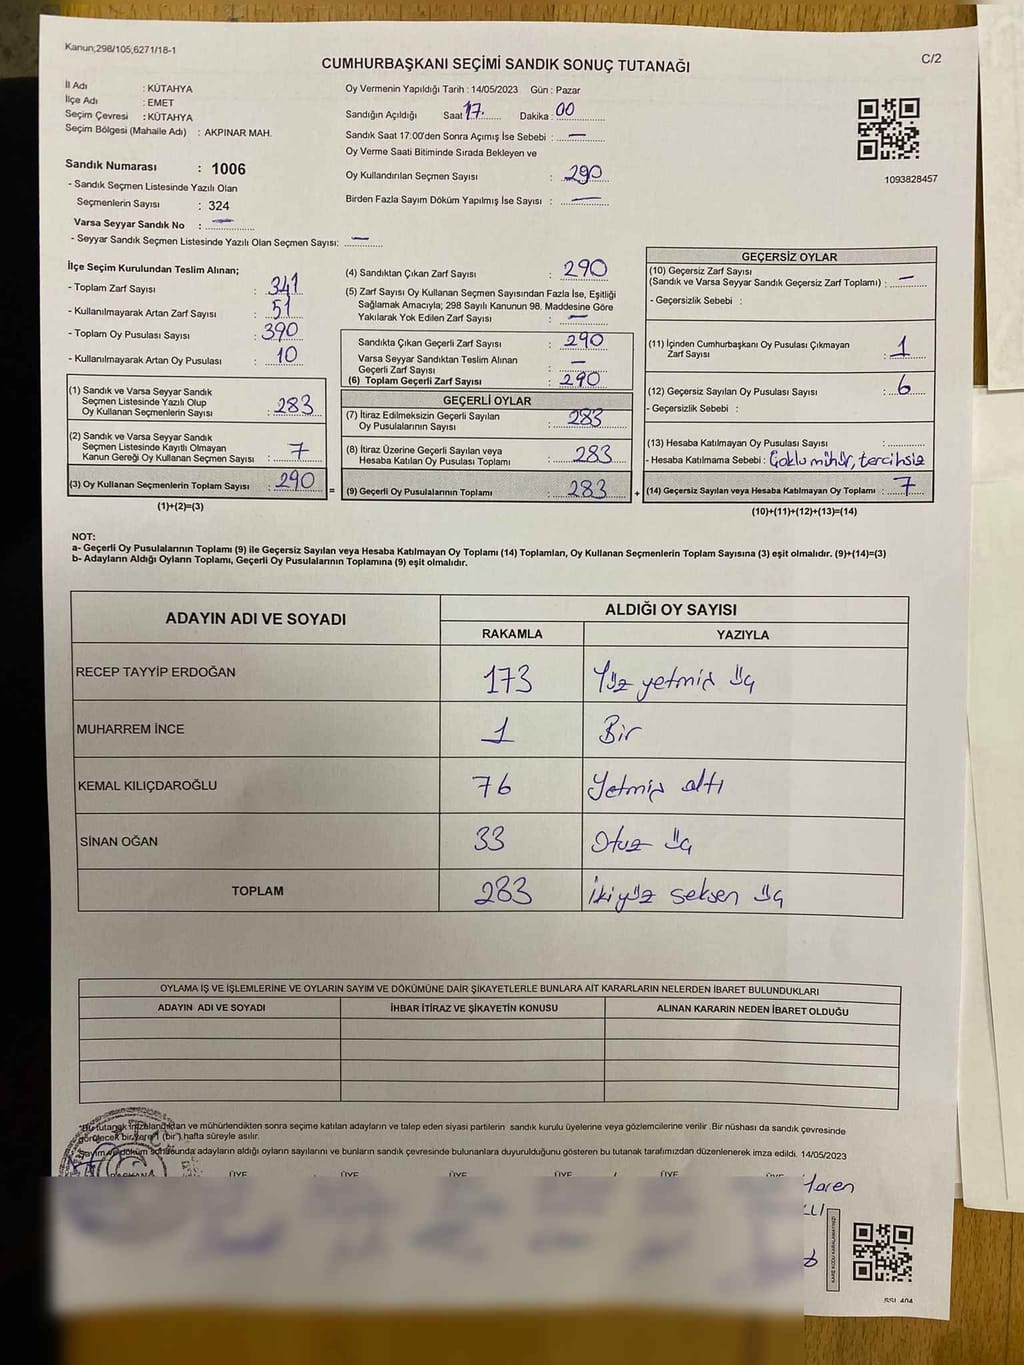 Kanun;298/105,6271/18-1
C/2
CUMHURBAŞKANI SEÇİMİ SANDIK SONUÇ TUTANAĞI
İl Adı : KÜTAHYA
İlçe Adı : EMET
Seçim Çevresi : KÜTAHYA
Seçim Bölgesi (Mahalle Adı) : AKPINAR MAH.
Sandık Numarası : 1006
- Sandık Seçmen Listesinde Yazılı Olan
Seçmenlerin Sayısı : 324
Varsa Seyyar Sandık No : —
- Seyyar Sandık Seçmen Listesinde Yazılı Olan Seçmen Sayısı: —
Oy Vermenin Yapıldığı Tarih : 14/05/2023 Gün : Pazar
Sandığın Açıldığı Saat 17. Dakika : 00
Sandık Saat 17:00'den Sonra Açımış İse Sebebi : —
Oy Verme Saati Bitiminde Sırada Bekleyen ve
Oy Kullandırılan Seçmen Sayısı : 290
Birden Fazla Sayım Döküm Yapılmış İse Sayısı : —
1093828457
İlçe Seçim Kurulundan Teslim Alınan;
- Toplam Zarf Sayısı : 341
- Kullanılmayarak Artan Zarf Sayısı : 51
- Toplam Oy Pusulası Sayısı : 390
- Kullanılmayarak Artan Oy Pusulası : 10
(1) Sandık ve Varsa Seyyar Sandık
Seçmen Listesinde Yazılı Olup
Oy Kullanan Seçmenlerin Sayısı : 283
(2) Sandık ve Varsa Seyyar Sandık
Seçmen Listesinde Kayıtlı Olmayan
Kanun Gereği Oy Kullanan Seçmen Sayısı : 7
(3) Oy Kullanan Seçmenlerin Toplam Sayısı : 290
(1)+(2)=(3)
(4) Sandıktan Çıkan Zarf Sayısı : 290
(5) Zarf Sayısı Oy Kullanan Seçmen Sayısından Fazla İse, Eşitliği
Sağlamak Amacıyla; 298 Sayılı Kanunun 98. Maddesine Göre
Yakılarak Yok Edilen Zarf Sayısı : —
Sandıkta Çıkan Geçerli Zarf Sayısı : 290
Varsa Seyyar Sandıktan Teslim Alınan
Geçerli Zarf Sayısı : —
(6) Toplam Geçerli Zarf Sayısı : 290
GEÇERLİ OYLAR
(7) İtiraz Edilmeksizin Geçerli Sayılan
Oy Pusulalarının Sayısı : 283
(8) İtiraz Üzerine Geçerli Sayılan veya
Hesaba Katılan Oy Pusulası Toplamı : 283
= (9) Geçerli Oy Pusulalarının Toplamı : 283 +
GEÇERSİZ OYLAR
(10) Geçersiz Zarf Sayısı
(Sandık ve Varsa Seyyar Sandık Geçersiz Zarf Toplamı) : —
- Geçersizlik Sebebi :
(11) İçinden Cumhurbaşkanı Oy Pusulası Çıkmayan
Zarf Sayısı : 1
(12) Geçersiz Sayılan Oy Pusulası Sayısı : 6
- Geçersizlik Sebebi :
(13) Hesaba Katılmayan Oy Pusulası Sayısı :
- Hesaba Katılmama Sebebi : Çoklu mühür, tercihsiz
(14) Geçersiz Sayılan veya Hesaba Katılmayan Oy Toplamı : 7
(10)+(11)+(12)+(13)=(14)
NOT:
a- Geçerli Oy Pusulalarının Toplamı (9) ile Geçersiz Sayılan veya Hesaba Katılmayan Oy Toplamı (14) Toplamları, Oy Kullanan Seçmenlerin Toplam Sayısına (3) eşit olmalıdır. (9)+(14)=(3)
b- Adayların Aldığı Oyların Toplamı, Geçerli Oy Pusulalarının Toplamına (9) eşit olmalıdır.
ADAYIN ADI VE SOYADI ALDIĞI OY SAYISI
RAKAMLA YAZIYLA
RECEP TAYYİP ERDOĞAN 173 Yüz yetmiş üç
MUHARREM İNCE 1 Bir
KEMAL KILIÇDAROĞLU 76 Yetmiş altı
SİNAN OĞAN 33 Otuz üç
TOPLAM 283 İkiyüz seksen üç
OYLAMA İŞ VE İŞLEMLERİNE VE OYLARIN SAYIM VE DÖKÜMÜNE DAİR ŞİKAYETLERLE BUNLARA AİT KARARLARIN NELERDEN İBARET BULUNDUKLARI
ADAYIN ADI VE SOYADI İHBAR İTİRAZ VE ŞİKAYETİN KONUSU ALINAN KARARIN NEDEN İBARET OLDUĞU
"Bu tutanak imzalandıktan ve mühürlendikten sonra seçime katılan adayların ve talep eden siyasi partilerin sandık kurulu üyelerine veya gözlemcilerine verilir .Bir nüshası da sandık çevresinde
görülecek bir yere 1 (bir) hafta süreyle asılır.
Sayım ve döküm sonucunda adayların aldığı oyların sayılarını ve bunların sandık çevresinde bulunanlara duyurulduğunu gösteren bu tutanak tarafımızdan düzenlenerek imza edildi. 14/05/2023
BAŞKAN ÜYE ÜYE ÜYE ÜYE ÜYE ÜYE